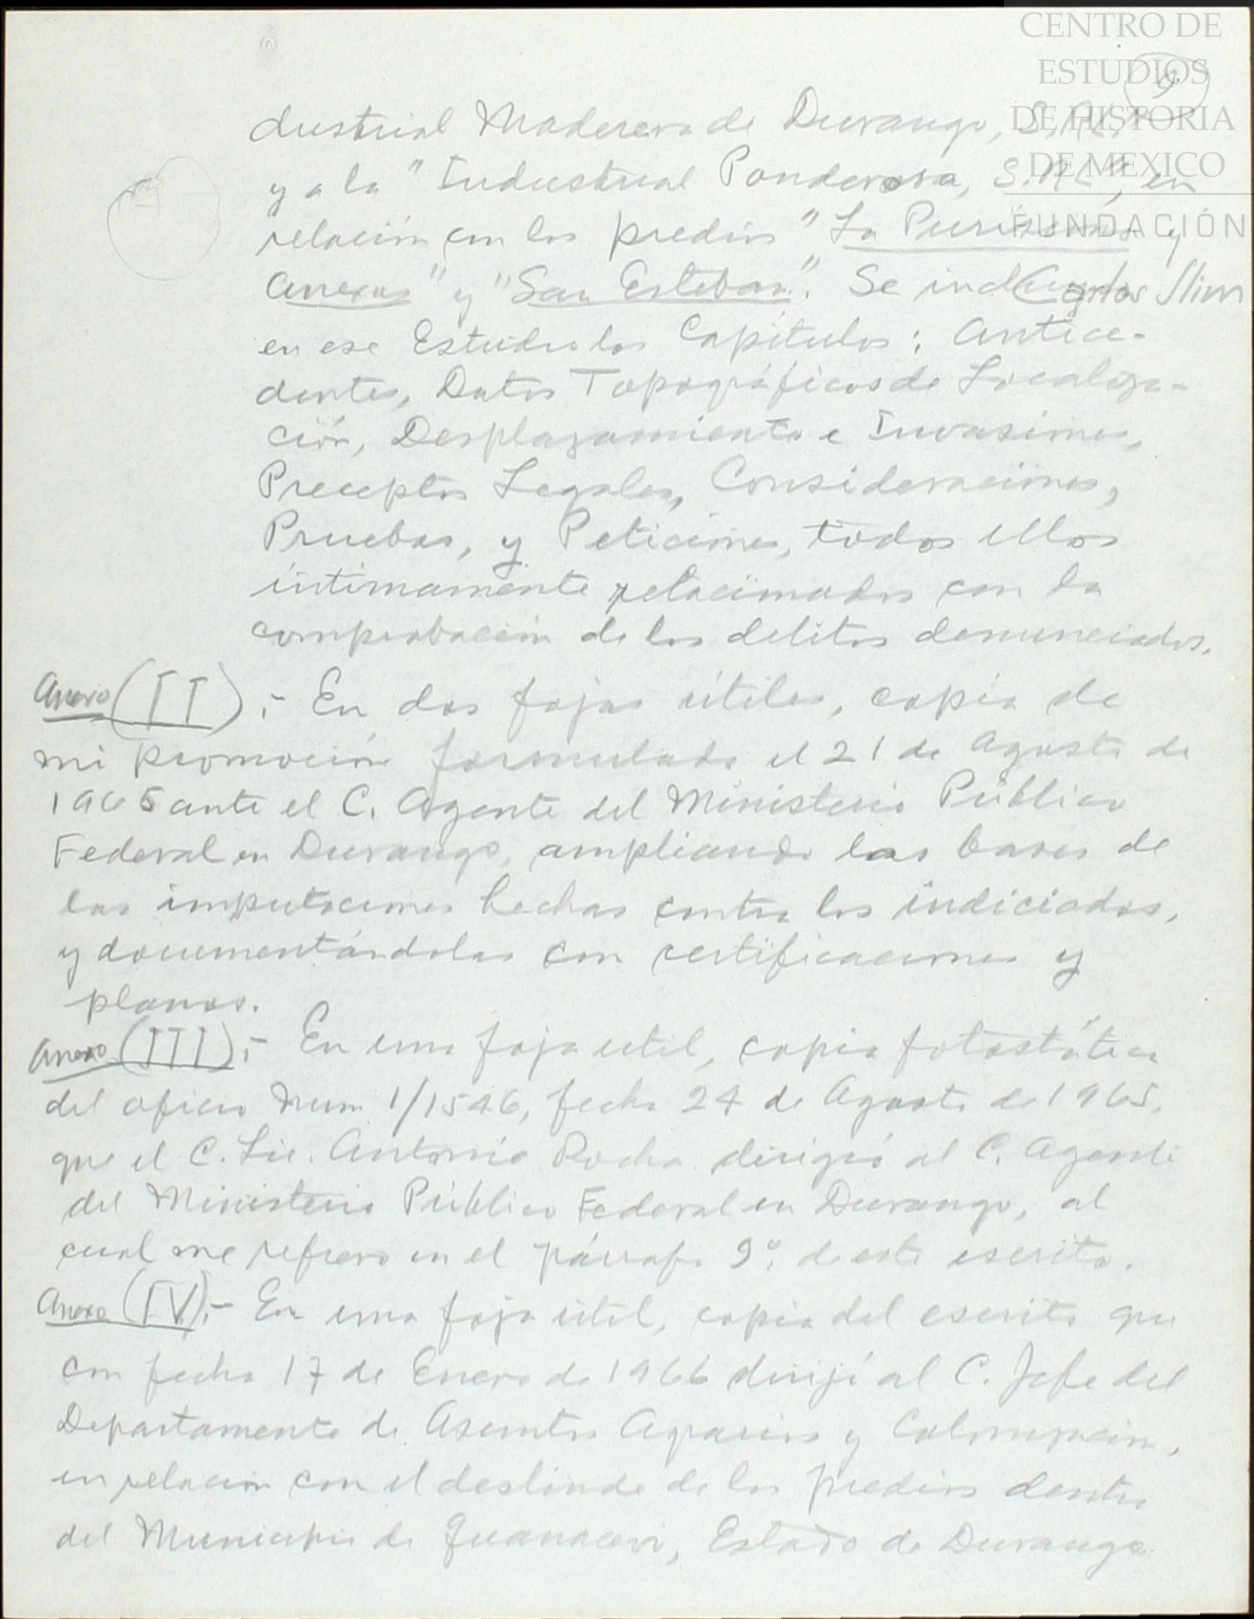 CENTRO DE
ESTUDIOS
DE HISTORIA
DE MEXICO
FUNDACIÓN
Carlos Slim
9
dustrial Maderera de Durango, S.RL."
y a la "Industrial Ponderosa, S.RL", en
relación con los predios "La Purísima y
Anexas" y "San Esteban". Se incluyen
en ese Estudio los Capítulos: Antece-
dentes, Datos Topográficos de Localiza-
ción, Desplazamiento e Invasiones,
Preceptos Legales, Consideraciones,
Pruebas, y Peticiones, todos ellos
íntimamente relacionados con la
comprobación de los delitos denunciados.
Anexo (II).- En dos fojas útiles, copia de
mi promoción formulada el 21 de Agosto de
1965 ante el C. Agente del Ministerio Público
Federal en Durango, ampliando las bases de
las imputaciones hechas contra los indiciados,
y documentándolas con certificaciones y
planos.
Anexo (III).- En una foja útil, copia fotostática
del oficio Num 1/1546, fecha 24 de Agosto de 1965,
que el C. Lic. Antonio Rocha dirigió al C. Agente
del Ministerio Público Federal en Durango, al
cual me refiero en el párrafo 9o. de este escrito.
Anexo (IV).- En una foja útil, copia del escrito que
con fecha 17 de Enero de 1966 dirijí al C. Jefe del
Departamento de Asuntos Agrarios y Colonización,
en relación con el deslinde de los predios dentro
del Municipio de Guanaceví, Estado de Durango